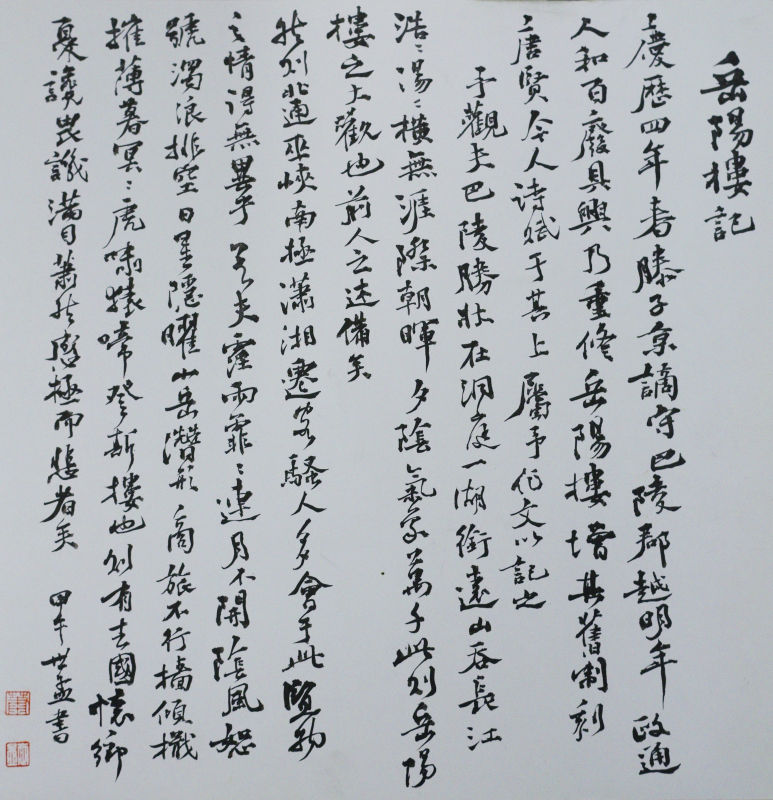 岳陽樓記
慶歷四年春滕子京謫守巴陵郡越明年政通
人和百廢具興乃重修岳陽樓增其舊制刻
唐賢今人詩賦于其上屬予作文以記之
予觀夫巴陵勝狀在洞庭一湖銜遠山吞長江
浩〻湯〻橫無涯際朝暉夕陰氣象萬千此則岳陽
樓之大觀也前人之述備矣
然則北通巫峽南極瀟湘遷客騷人多會于此覽物
之情得無異乎若夫霪雨霏〻連月不開陰風怒
號濁浪排空日星隱曜山岳潛形商旅不行檣傾楫
摧薄暮冥〻虎嘯猿啼登斯樓也則有去國懷鄉
憂讒畏譏滿目蕭然感極而悲者矣 甲午世孟書